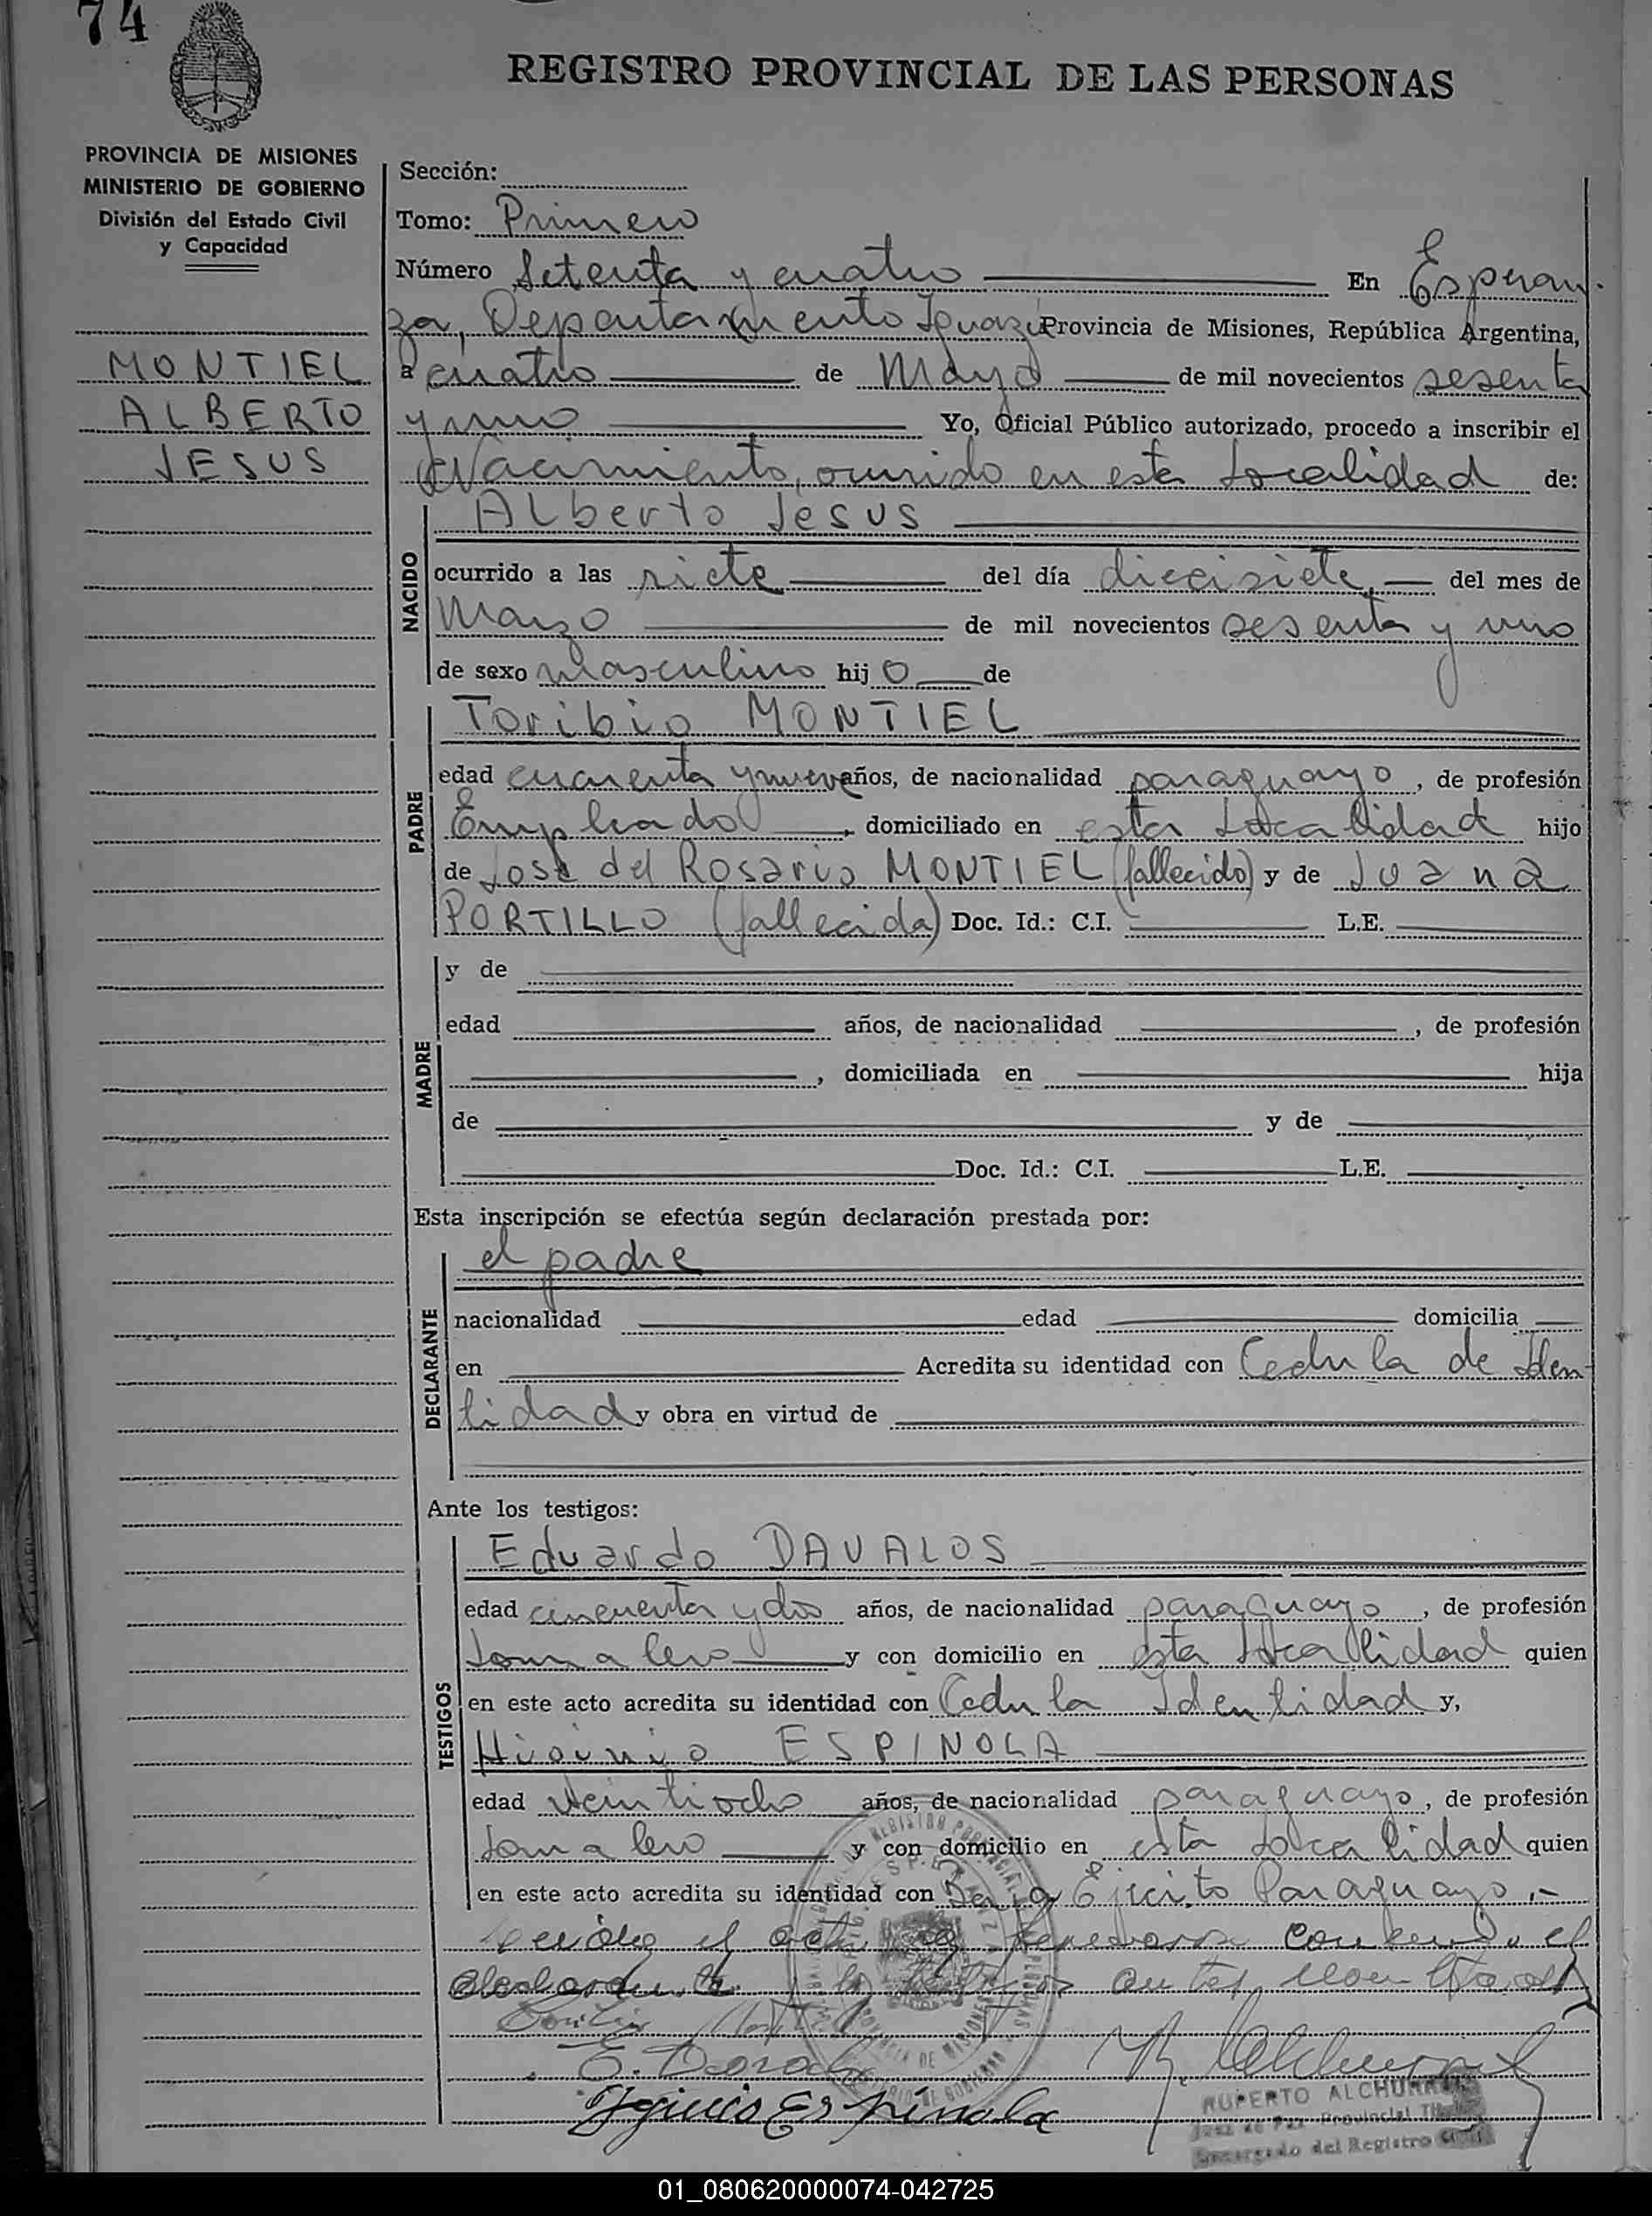 74
REGISTRO PROVINCIAL DE LAS PERSONAS
PROVINCIA DE MISIONES
MINISTERIO DE GOBIERNO
División del Estado Civil
y Capacidad
MONTIEL
ALBERTO
JESUS
Sección:
Tomo: Primero
Número Setenta y cuatro En Esperan-
za, Departamento Iguazú Provincia de Misiones, República Argentina,
a cuatro de Mayo de mil novecientos sesenta
y uno Yo, Oficial Público autorizado, procedo a inscribir el
Nacimiento, ocurrido en esta Localidad de:
NACIDO
Alberto Jesus
ocurrido a las siete del día diecisiete del mes de
Marzo de mil novecientos sesenta y uno
de sexo masculino hij o de
PADRE
Toribio MONTIEL
edad cuarenta y nueve años, de nacionalidad paraguayo, de profesión
Empleado, domiciliado en esta Localidad hijo
de José del Rosario MONTIEL (fallecido) y de Juana
PORTILLO (fallecida) Doc. Id.: C.I. L.E.
MADRE
y de
edad años, de nacionalidad , de profesión
, domiciliada en hija
de y de
Doc. Id.: C.I. L.E.
Esta inscripción se efectúa según declaración prestada por:
DECLARANTE
el padre
nacionalidad edad domicilia
en Acredita su identidad con Cedula de Iden-
tidad y obra en virtud de
Ante los testigos:
TESTIGOS
Eduardo DAVALOS
edad cincuenta y dos años, de nacionalidad paraguayo, de profesión
Jornalero y con domicilio en esta Localidad quien
en este acto acredita su identidad con Cedula Identidad y,
Higinio ESPINOLA
edad veintiocho años, de nacionalidad paraguayo, de profesión
Jornalero y con domicilio en esta Localidad quien
en este acto acredita su identidad con Ejercito Paraguayo.-
el acta la conmigo el
declarante y los testigos antes
E. Davalo
Iginio Espinola
RUPERTO ALCHURRUT
Juez de Paz Provincial
Encargado del Registro Civil
01_080620000074-042725